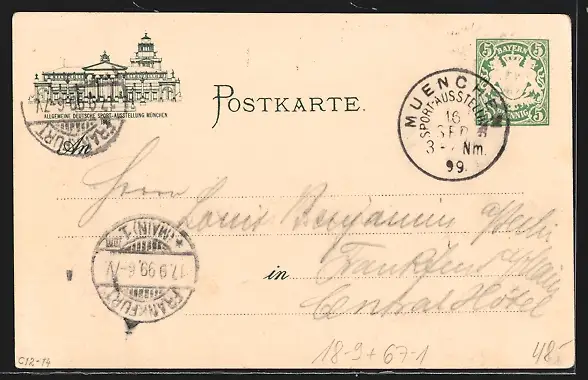 5 BAYERN 5
PFENNIG
ALLGEMEINE DEUTSCHE SPORT-AUSSTELLUNG MÜNCHEN
POSTKARTE.
MUENCHEN
SPORT-AUSSTELLUNG
16
SEP
3-4 Nm.
99.
FRANKFURT
An
Herrn
Louis Benjamin
FRANKFURT (MAIN) 1.
17.9.99.6-7V
in
Frankfurt a/Main
Central Hôtel
18-9+67-1
48.-
C12-14